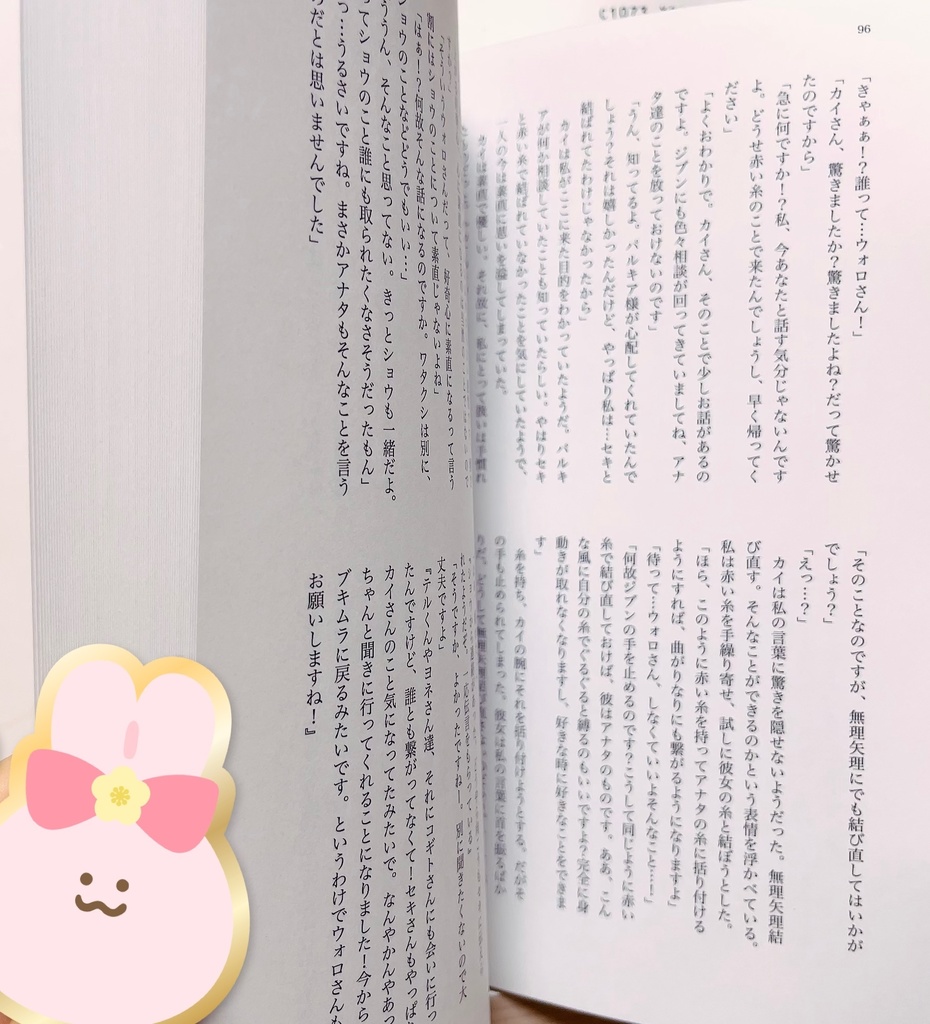 96
「きゃぁぁ！？誰って…ウォロさん！」
「カイさん、驚きましたか？驚きましたよね？だって驚かせ
たのですから」
「急に何ですか！？私、今あなたと話す気分じゃないんです
よ。どうせ赤い糸のことで来たんでしょうし、早く帰ってく
ださい」
「よくおわかりで。カイさん、そのことで少しお話があるの
ですよ。ジブンにも色々相談が回ってきていましてね、アナ
タ達のことを放っておけないのです」
「うん、知ってるよ。パルキア様が心配してくれていたんで
しょう？それは嬉しかったんだけど、やっぱり私は…セキと
結ばれてたわけじゃなかったから」
カイは私がここに来た目的をわかっていたようだ。パルキ
アが何か相談していたことも知っていたらしい。やはりセキ
と赤い糸で結ばれていなかったことを気にしていたようで、
一人の今は素直に思いを溢してしまっていた。
カイは素直で優しい。それ故に、私にとって扱いは手慣れ
「そのことなのですが、無理矢理にでも結び直してはいかが
でしょう？」
「えっ…？」
カイは私の言葉に驚きを隠せないようだった。無理矢理結
び直す。そんなことができるのかという表情を浮かべている。
私は赤い糸を手繰り寄せ、試しに彼女の糸と結ぼうとした。
「ほら、このように赤い糸を持ってアナタの糸に括り付ける
ようにすれば、曲がりなりにも繋がるようになりますよ」
「待って…ウォロさん、しなくていいよそんなこと…！」
「何故ジブンの手を止めるのです？こうして同じように赤い
糸で結び直しておけば、彼はアナタのものです。ああ、こん
な風に自分の糸でぐるぐると縛るのもいいですよ？完全に身
動きが取れなくなりますし、好きな時に好きなことをできま
す」
糸を持ち、カイの腕にそれを括り付けようとする。だがそ
の手も止められてしまった。彼女は私の言葉に首を振るばか
「そういうウォロさんだって、好奇心に素直になるって言う
別にはショウのことについて素直じゃないよね」
「はぁ！？何故そんな話になるのですか。ワタクシは別に、
ショウのことなどどうでもいい…」
ううん、そんなこと思ってない。きっとショウも一緒だよ。
ってショウのこと誰にも取られたくなさそうだったもん」
っ…うるさいですね。まさかアナタもそんなことを言う
だとは思いませんでした」
「そうですか、よかったですねー。別に聞きたくないので大
丈夫ですよ」
『テルくんやヨネさん達、それにコギトさんにも会いに行っ
たんですけど、誰とも繋がってなくて！セキさんもやっぱ
カイさんのこと気になってたみたいで。なんやかんやあっ
ちゃんと聞きに行ってくれることになりました！今から
ブキムラに戻るみたいです。というわけでウォロさんも
お願いしますね！』